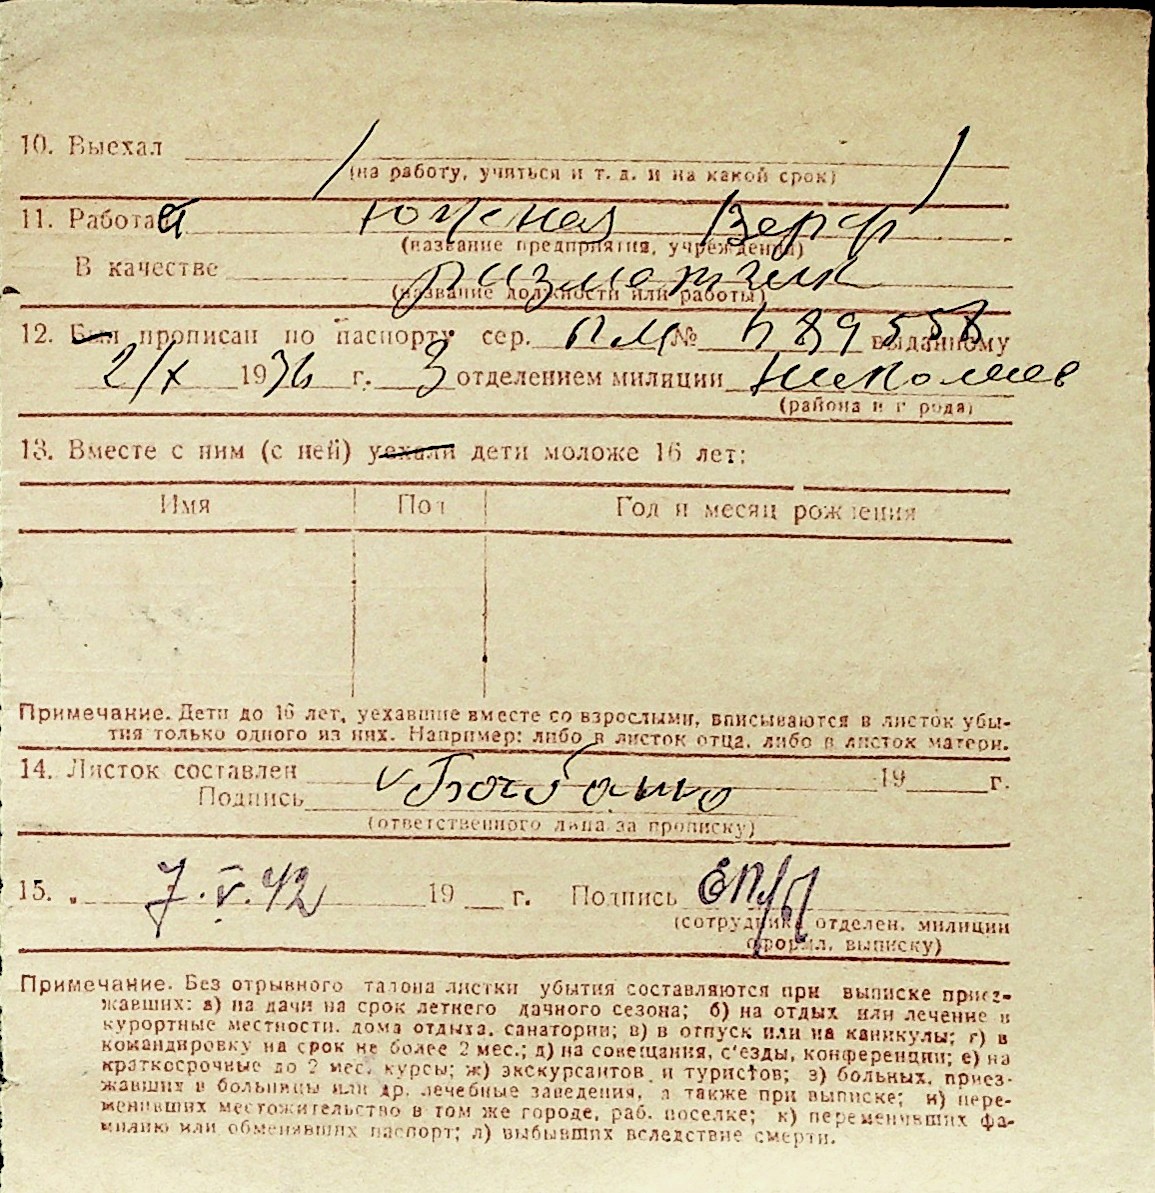 10. Выехал
(на работу, учиться и т. д. и на какой срок)
11. Работает Южная Верфь
(название предприятия, учреждения)
В качестве разметчик
(название должности или работы)
12. Был прописан по паспорту сер. ПМ № 589558 выданному
2/X 1936 г. 3 отделением милиции Николаев
(района и города)
13. Вместе с ним (с ней) уехали дети моложе 16 лет:
Имя Пол Год и месяц рождения
Примечание. Дети до 16 лет, уехавшие вместе со взрослыми, вписываются в листок убы-
тия только одного из них. Например: либо в листок отца, либо в листок матери.
14. Листок составлен 19 г.
Подпись
(ответственного лица за прописку)
15. „ 7.V.42 19 г. Подпись
(сотрудника отделен. милиции
оформл. выписку)
Примечание. Без отрывного талона листки убытия составляются при выписке приез-
жавших: а) на дачи на срок летнего дачного сезона; б) на отдых или лечение в
курортные местности, дома отдыха, санатории; в) в отпуск или на каникулы; г) в
командировку на срок не более 2 мес.; д) на совещания, с'езды, конференции; е) на
краткосрочные до 2 мес. курсы; ж) экскурсантов и туристов; з) больных, приез-
жавших в больницы или др. лечебные заведения, а также при выписке; и) пере-
менивших местожительство в том же городе, раб. поселке; к) переменивших фа-
милию или обменявших паспорт; л) выбывших вследствие смерти.